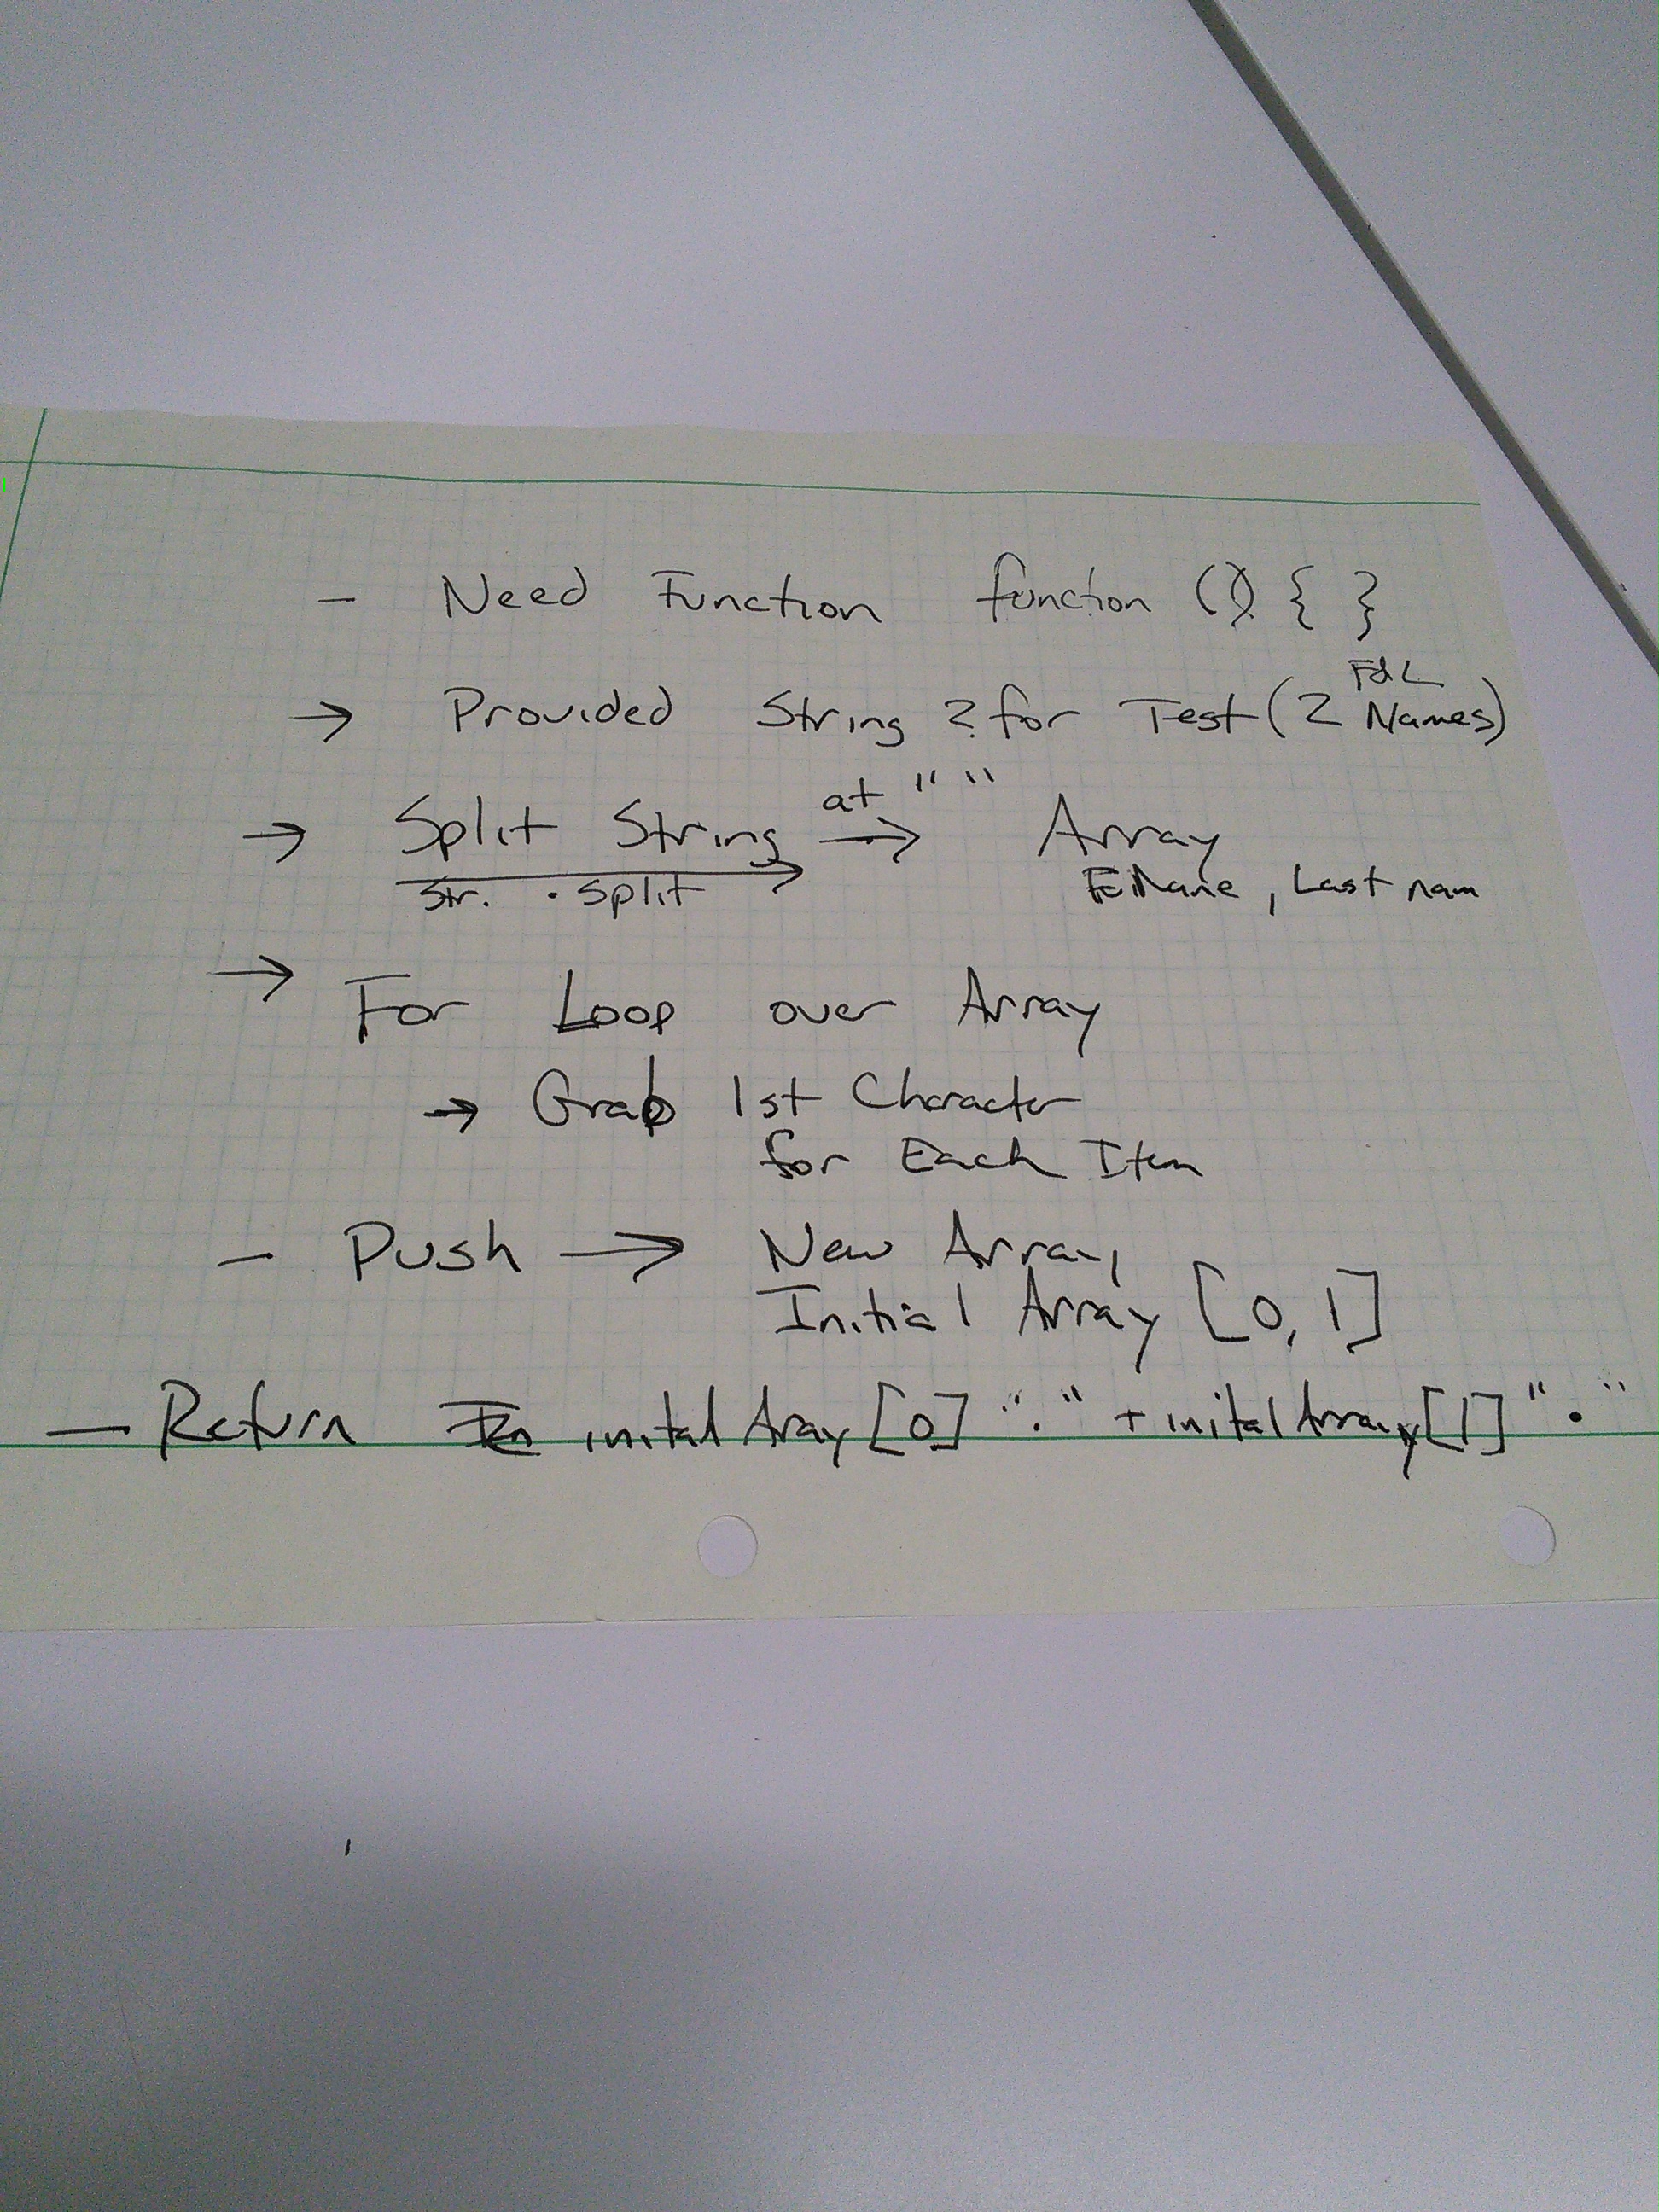 - Need Function function () { }
→ Provided String ? for Test (2 F&L Names)
→ Split String → at " " Array
str. . split , Last nam
→ For Loop over Array
→ Grab 1st Character
for Each Item
- Push → New Array
Initial Array [0, 1]
- Return inital Aray [0] "." + inital Array [1] "."